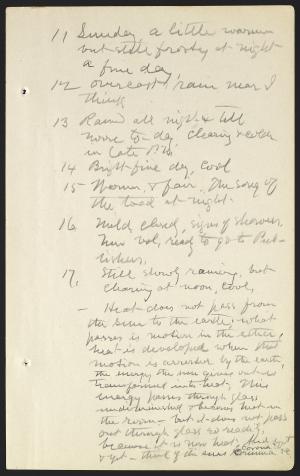 11 Sunday a little warmer
but still frosty at night
a fine day,
12 overcast, rain near I
think
13 Rain all night & till
noon to-day, clearing & colder
in late P.M.
14 Bright fine day, cool
15 Warm, & fair, The song of
the toad at night.
16 Mild, cloudy, signs of showers.
New vol, ready to go to Pub-
lishers.
17, Still slowly raining, but
clearing at noon, cool,
- Heat does not pass from
the sun to the earth; what
passes is motion in the ether,
heat is developed when that
motion is arrested by the earth,
the energy the sun gives out is
transformed into heat, This
energy passes through glass
undiminished & becomes heat in
the room - but it does not pass
out through glass so readily,
because it is now heat, And
& yet - think of the suns corona